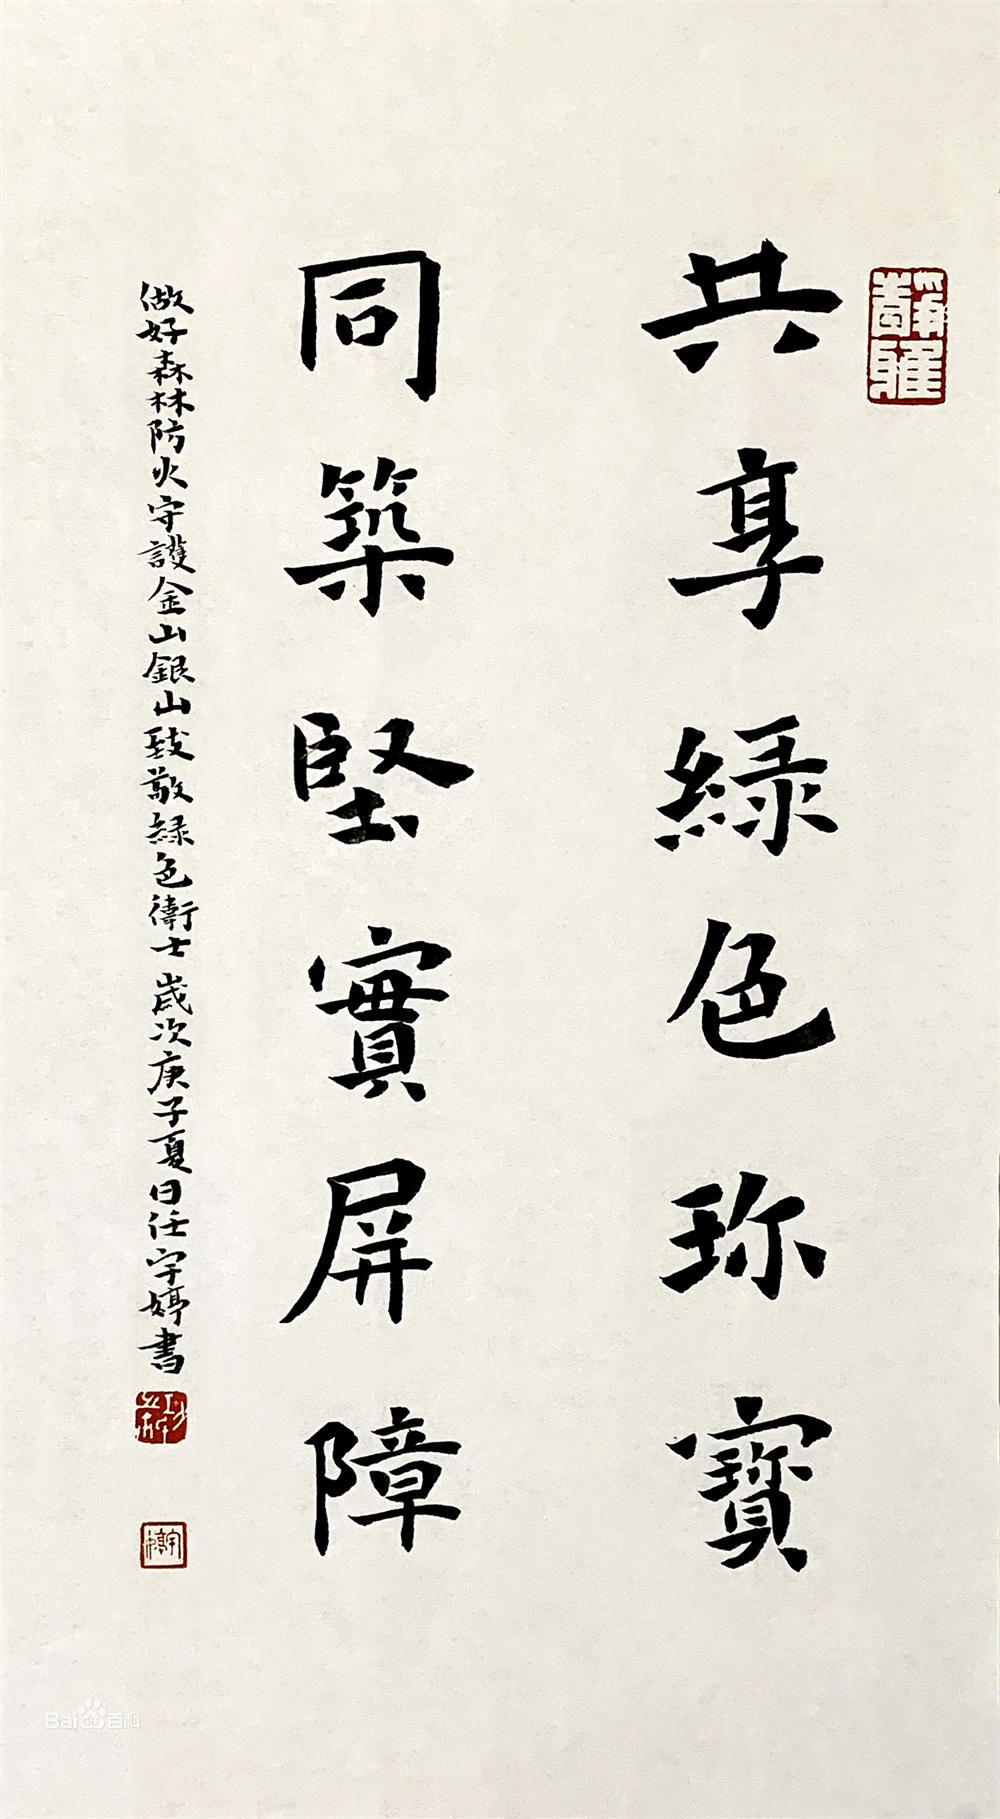 共享緑色珎寶
同築堅實屏障
做好森林防火守護金山銀山致敬緑色衛士歲次庚子夏日任宇婷書
Bai百科